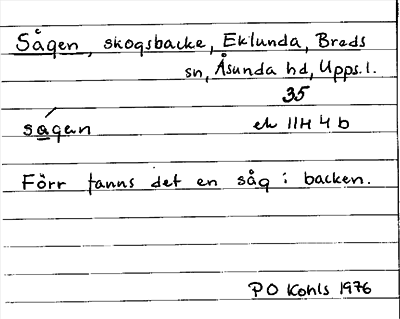 Sågen, skogsbacke, Eklunda, Breds
sn, Åsunda hd, Upps. l.
35
sågen ek 11H 4 b
Förr fanns det en såg i backen.
PO Kohls 1976